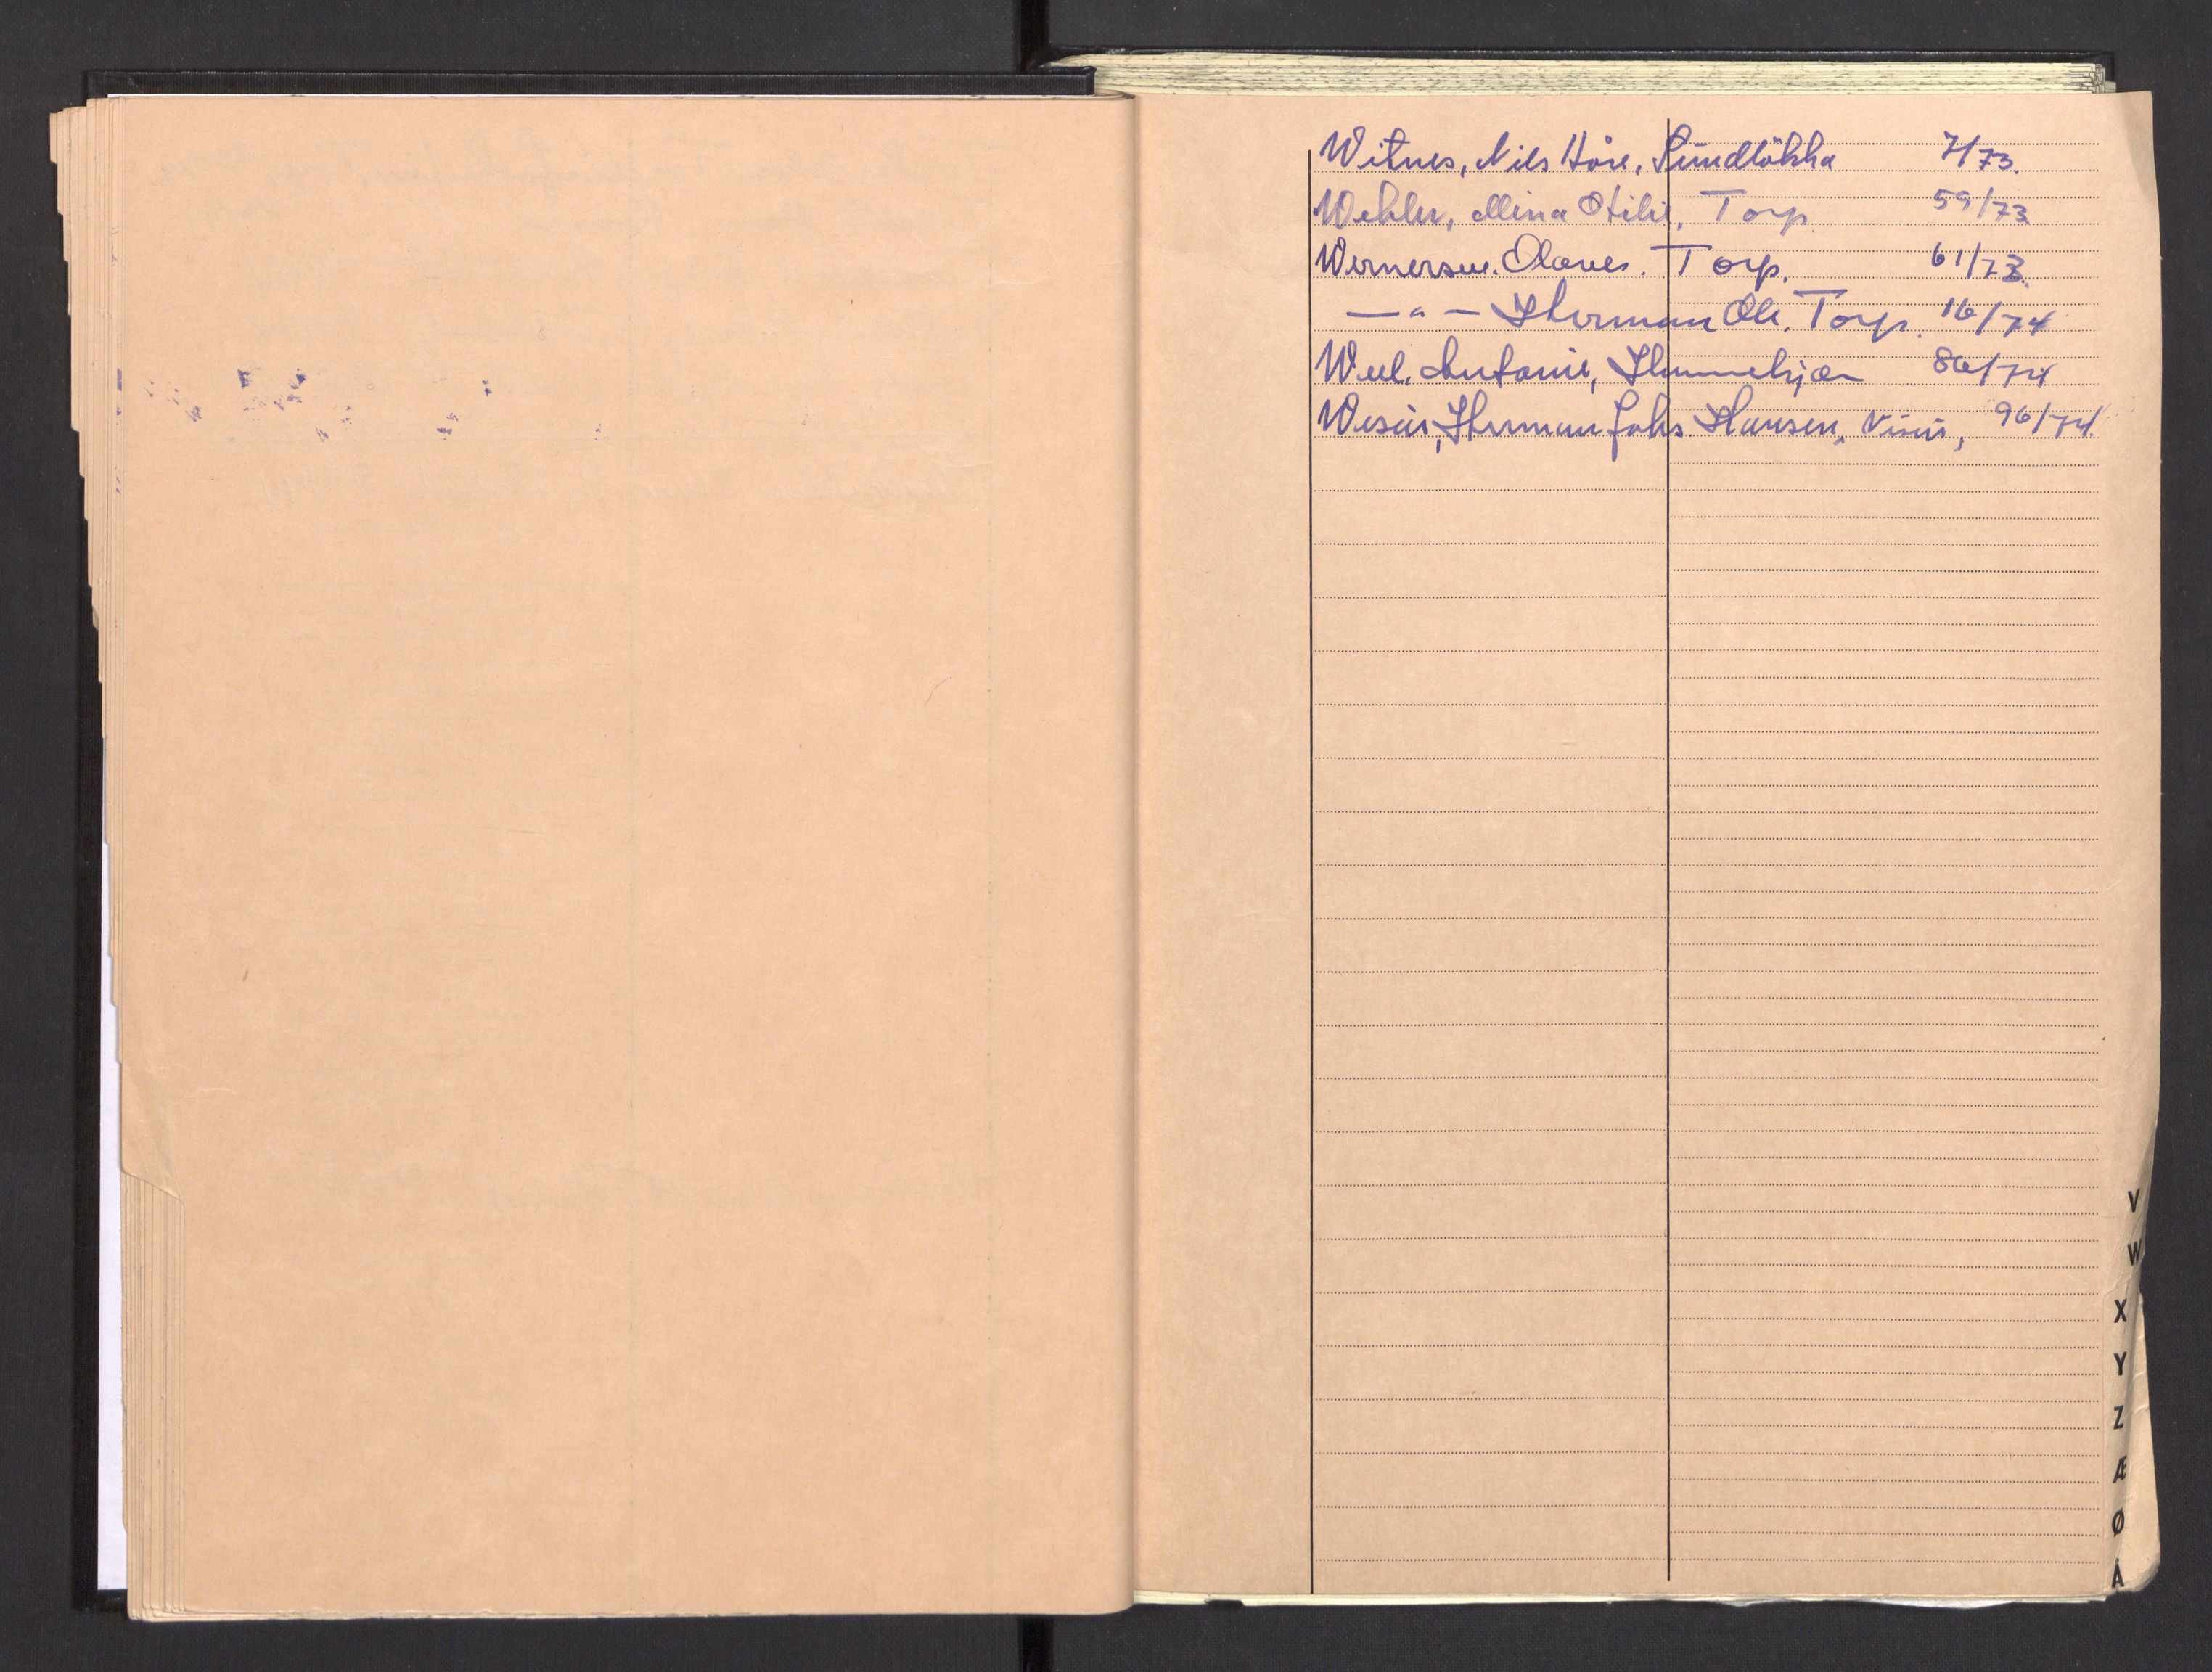 Witnes, Nils Kåre, Sundløkka 7/73.
Wehler, Mina Otilie, Torp 59/73
Wernersen. Olaves. Torp. 61/73.
— " — Herman Ole. Torp. 16/74
Weel. Antonie, Hunnekjær 86/74
Wisur, Herman Johs Hansen, Visur, 96/74.
V
W
X
Y
Z
Æ
Ø
Å